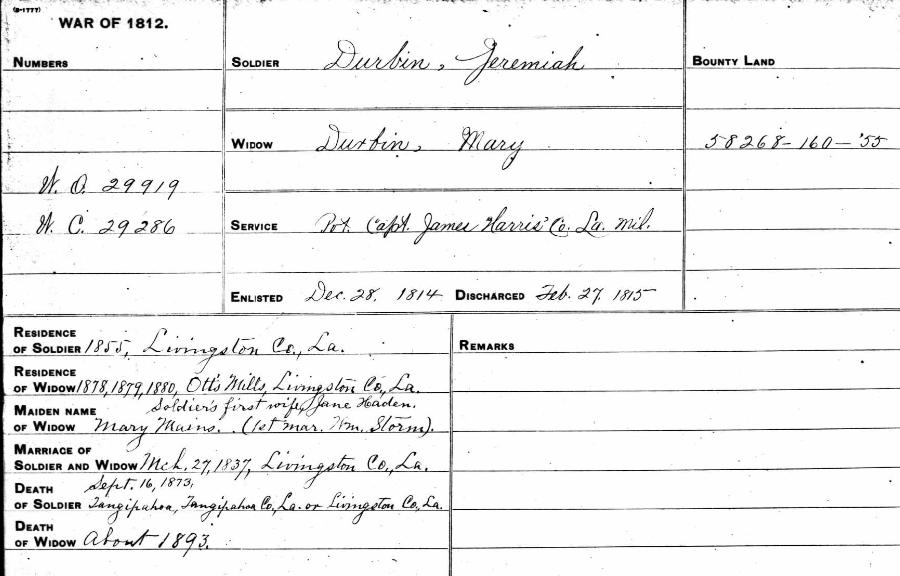 (3-1777)
WAR OF 1812.
NUMBERS
W. O. 29919
W. C. 29286
SOLDIER Durbin, Jeremiah
WIDOW Durbin, Mary
SERVICE Pvt. Capt. James Harris' Co. La. Mil.
ENLISTED Dec. 28, 1814 DISCHARGED Feb. 27, 1815
BOUNTY LAND
58268-160-'55
RESIDENCE
OF SOLDIER 1855, Livingston Co., La.
RESIDENCE
OF WIDOW 1878, 1879, 1880, Ott's Mills, Livingston Co., La.
Soldier's first wife, Jane Haden.
MAIDEN NAME
OF WIDOW Mary Mains. (1st mar. Wm. Storm).
MARRIAGE OF
SOLDIER AND WIDOW Mch. 27, 1837, Livingston Co., La.
DEATH Sept. 16, 1873,
OF SOLDIER Tangipahoa, Tangipahoa Co., La. or Livingston Co., La.
DEATH
OF WIDOW About 1893.
REMARKS